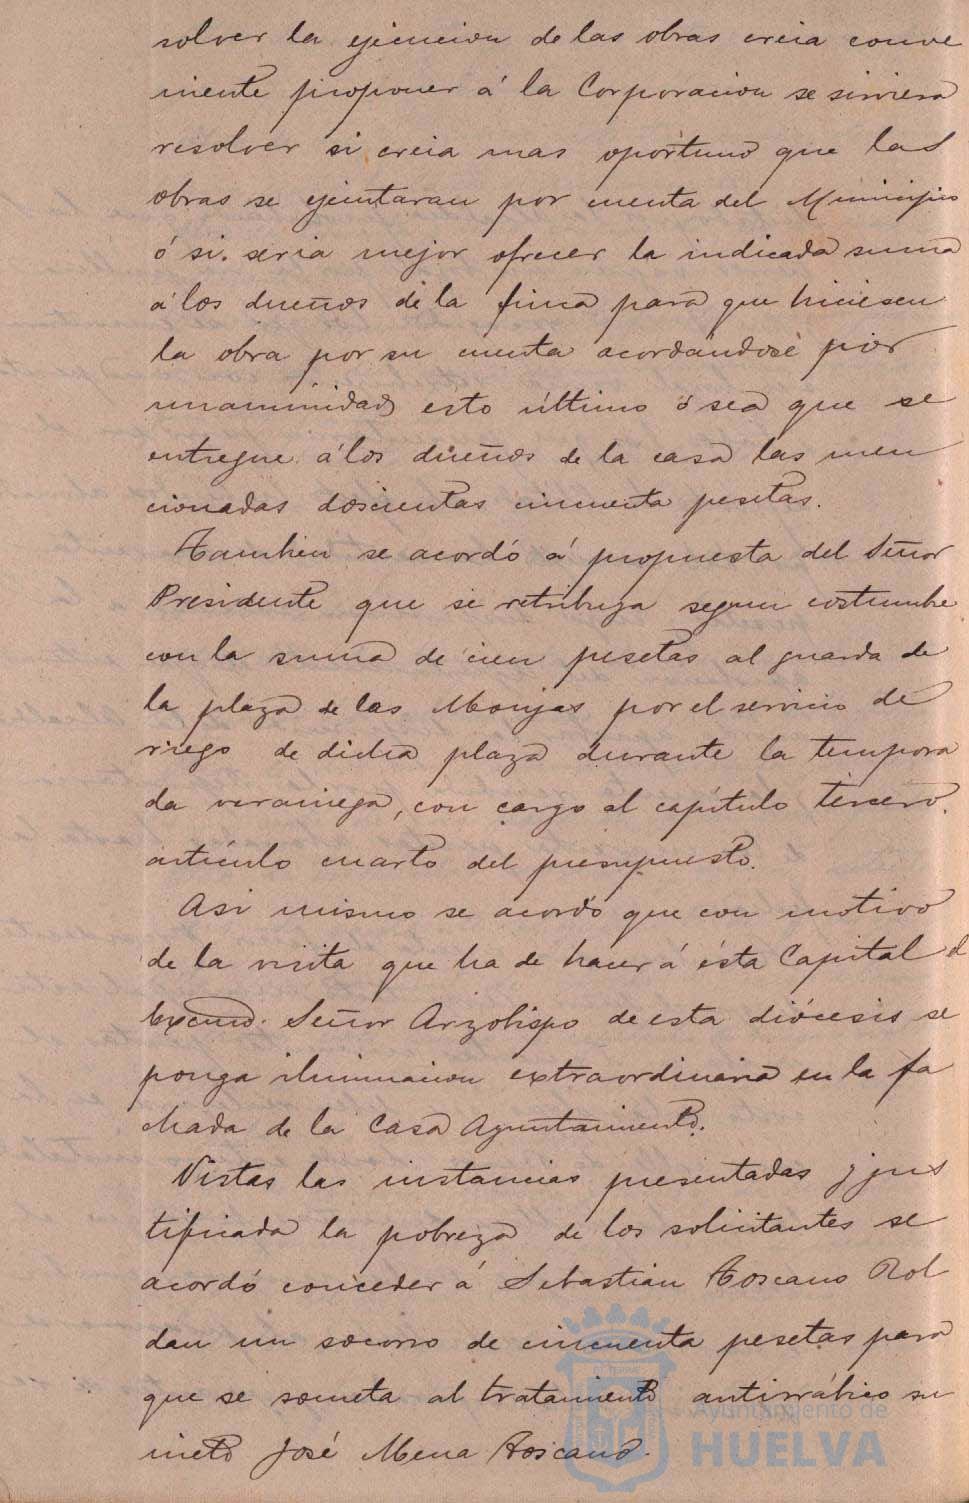 solver la ejecucion de las obras creia conve
niente proponer á la Corporacion se sirviera
resolver si creia mas oportuno que las
obras se ejecutaran por cuenta del Municipio
ó si seria mejor ofrecer la indicada suma
á los dueños de la finca para que hiciesen
la obra por su cuenta acordándose por
unanimidad esto último ó sea que se
entregue á los dueños de la casa las men
cionadas doscientas cincuenta pesetas.
Tambien se acordó á propuesta del Señor
Presidente que se retribuya segun costumbre
con la suma de cien pesetas al guarda de
la plaza de las Monjas por el servicio de
riego de dicha plaza durante la tempora
da veraniega, con cargo al capítulo tercero,
artículo cuarto del presupuesto.
Asi mismo se acordó que con motivo
de la visita que ha de hacer á ésta Capital el
Excmo. Señor Arzobispo de esta diócesis se
ponga iluminacion extraordinaria en la fa
chada de la Casa Ayuntamiento.
Vistas las instancias presentadas y jus
tificada la pobreza de los solicitantes se
acordó conceder á Sebastián Toscano Rol
dan un socorro de cincuenta pesetas para
que se someta al tratamiento antirrábico su
nieto José Mena Toscano.
Ayuntamiento de
HUELVA